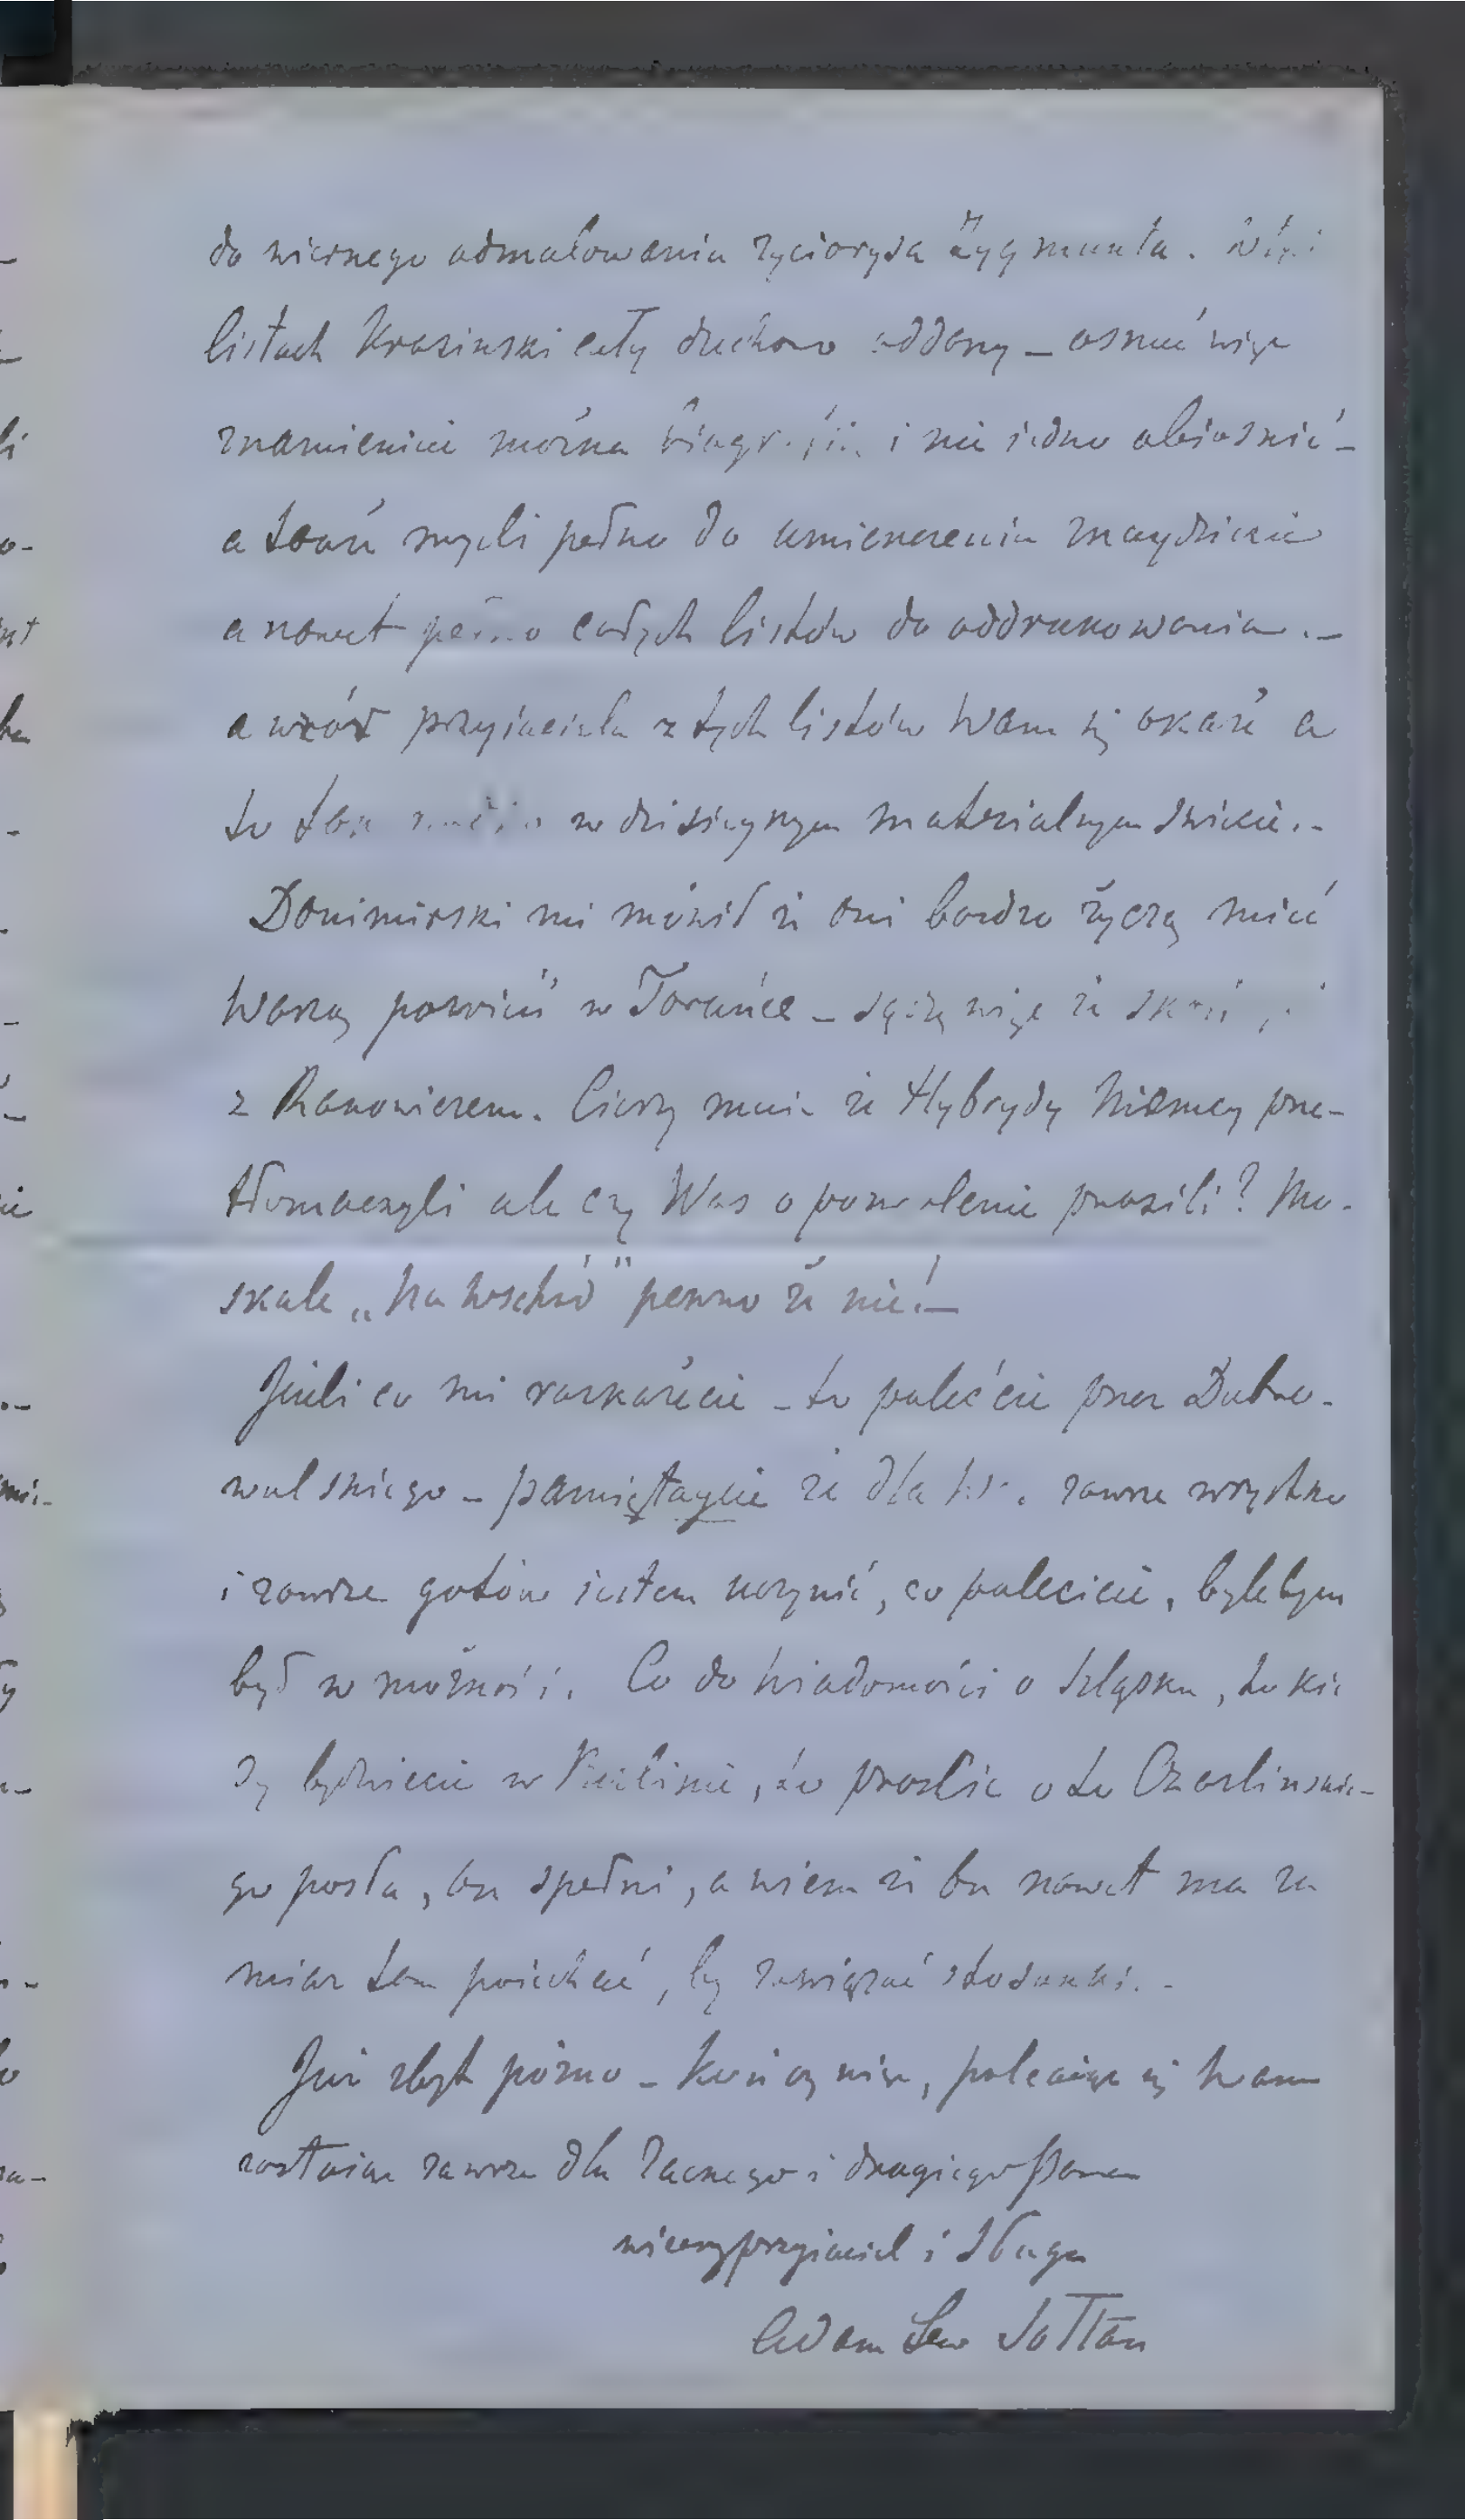 do wiernego odmalowania życiorysa Zygmunta.
listach Krasinski cały duchowo oddany – osnuć więc
znamienicie można i nie jedno obiasnić –
a toż myśli pełno do umieszczenia znaydziecie
a nawet pełno całych listów do oddrukowania. –
a wzór przyjaciela z tych listów Wam się okaże a
to w dzisieyszym materialnym świecie. –
Donimirski mi mówił że oni bardzo życzą mieć
Waszą powieść w Toruńce – więc że
z Rakowiczem. Cieszy mnie że Hybrydy Niemcy prze-
tłomaczyli ale czy Was o pozwolenie prosili? Mo-
skale „Na Wschód" pewno że nie! –
Jeżeli co mi rozkażecie – to polećcie przez Dobro-
wolskiego – pamiętaycie że dla zawsze wszystko
i zawsze gotów jestem uczynić, co polecicie, bylebym
był w możności. Co do wiadomości o Szląsku, to kie
dy będziecie w Berlinie, to proście o to Czarlinskie-
go posła, on spełni, a wiem że on nawet ma za
miar tam poiechać, by zawiązać stosunki. –
Już zbyt późno – kończę więc, polecaiąc się Wam
zostaiąc zawsze dla Zacnego i drogiego Pana
wierny przyiaciel i sługa
Adam Lew Sołtan